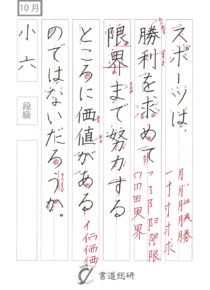 10月
小六
段級
スポーツは、
勝利を求めて
限界まで努力する
ところに価値がある
のではないだろうか。
月 月 胖 胖 勝 勝
一 十 寸 才 求 求
限 限 限
口 四 田 田 界 界
イ 価 価 価
書道総研